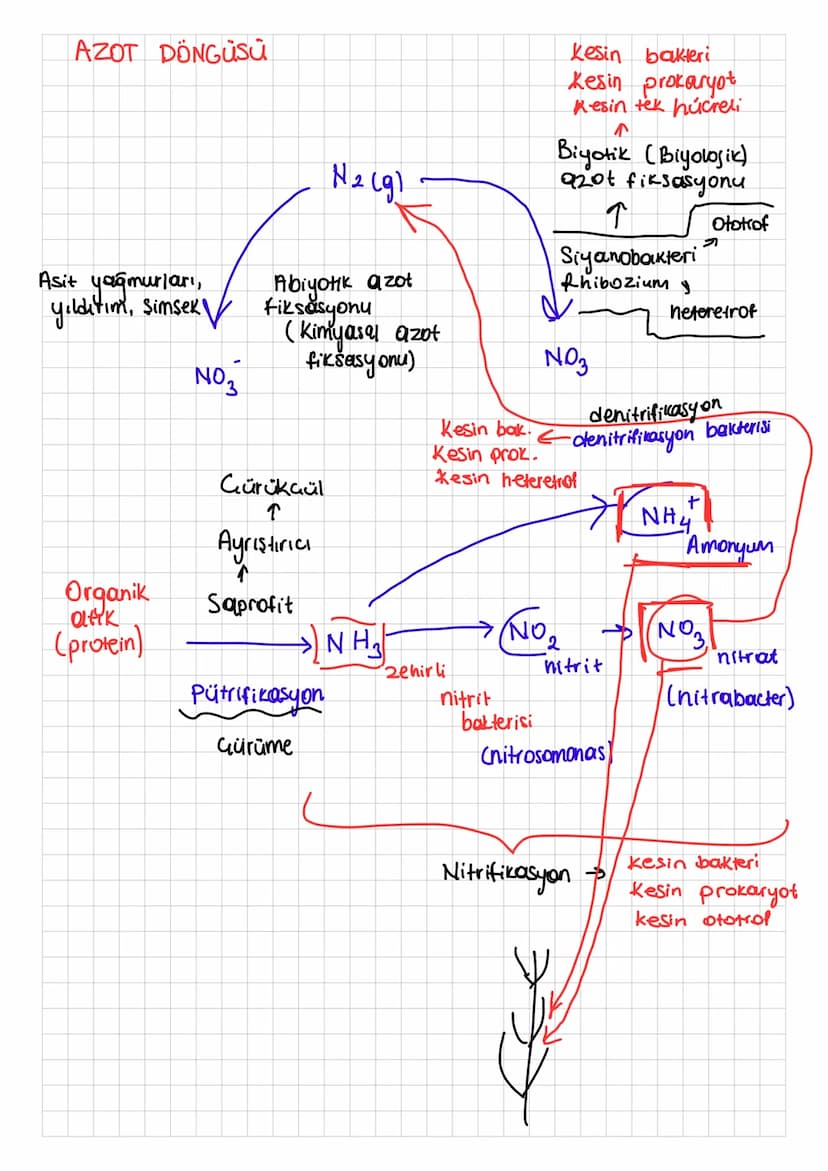 AZOT DÖNGÜSÜ
Kesin bakteri
Kesin prokaryot
Kesin tek hücreli
Biyotik (Biyolojik)
azot fiksasyonu
N2(g)
Ototrof
Siyanobakteri
Rhibozium
heteretrof
Asit yağmurları,
yıldırım, Şimsek
Abiyotik azot
fiksasyonu
(Kimyasal azot
fiksasyonu)
NO3-
NO3
denitrifikasyon
denitrifikasyon bakterisi
Kesin bak.
Kesin prok.
Kesin heteretrof
Çürükçül
Ayrıştırıcı
Saprofit
NH4+
Amonyum
Organik
atık
(protein)
NH3
zehirli
NO2
nitrit
NO3
nitrat
Pütrifikasyon
Çürüme
nitrit
bakterisi
(nitrosomonas)
(nitrabacter)
Nitrifikasyon
kesin bakteri
Kesin prokaryot
kesin ototrof